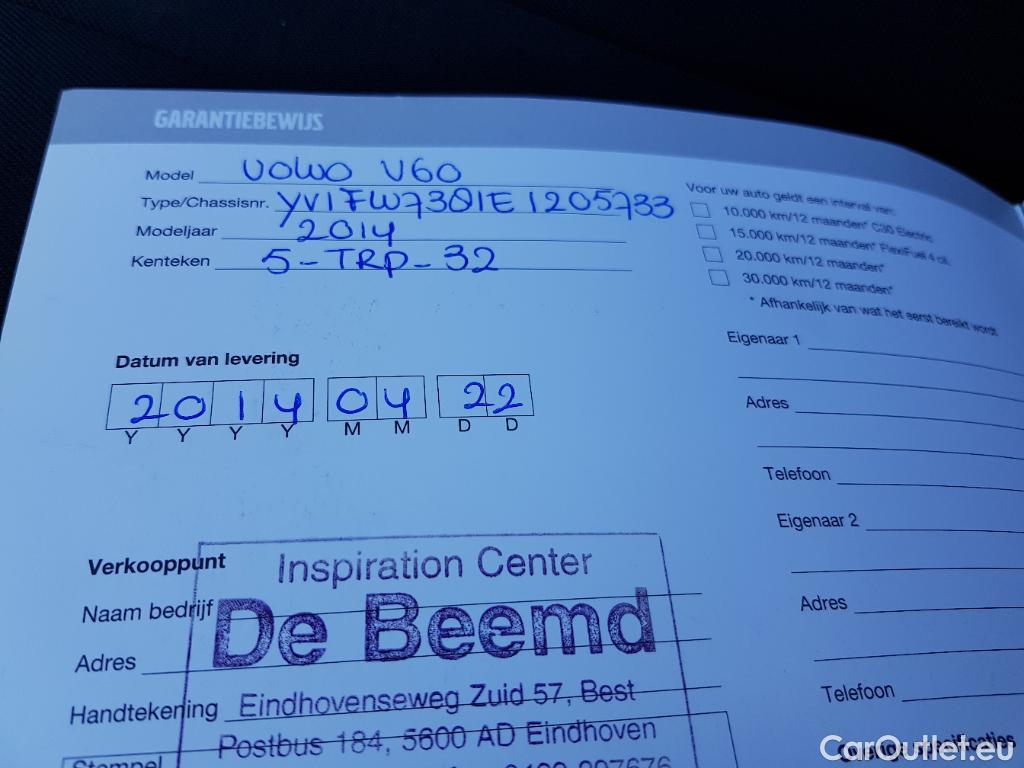 GARANTIEBEWIJS
Model VOLVO V60
Type/Chassisnr. YV1FW73Q1E1205733
Modeljaar 2014
Kenteken 5-TRP-32
Voor uw auto geldt een interval van:
10.000 km/12 maanden* C30 Electric
15.000 km/12 maanden* FlexiFuel 4 cil.
20.000 km/12 maanden*
30.000 km/12 maanden*
* Afhankelijk van wat het eerst bereikt wordt
Datum van levering
2014 04 22
Y Y Y Y M M D D
Eigenaar 1
Adres
Telefoon
Eigenaar 2
Adres
Telefoon
Verkooppunt
Naam bedrijf
Adres
Handtekening
Stempel
Inspiration Center
De Beemd
Eindhovenseweg Zuid 57, Best
Postbus 184, 5600 AD Eindhoven
CarOutlet.eu